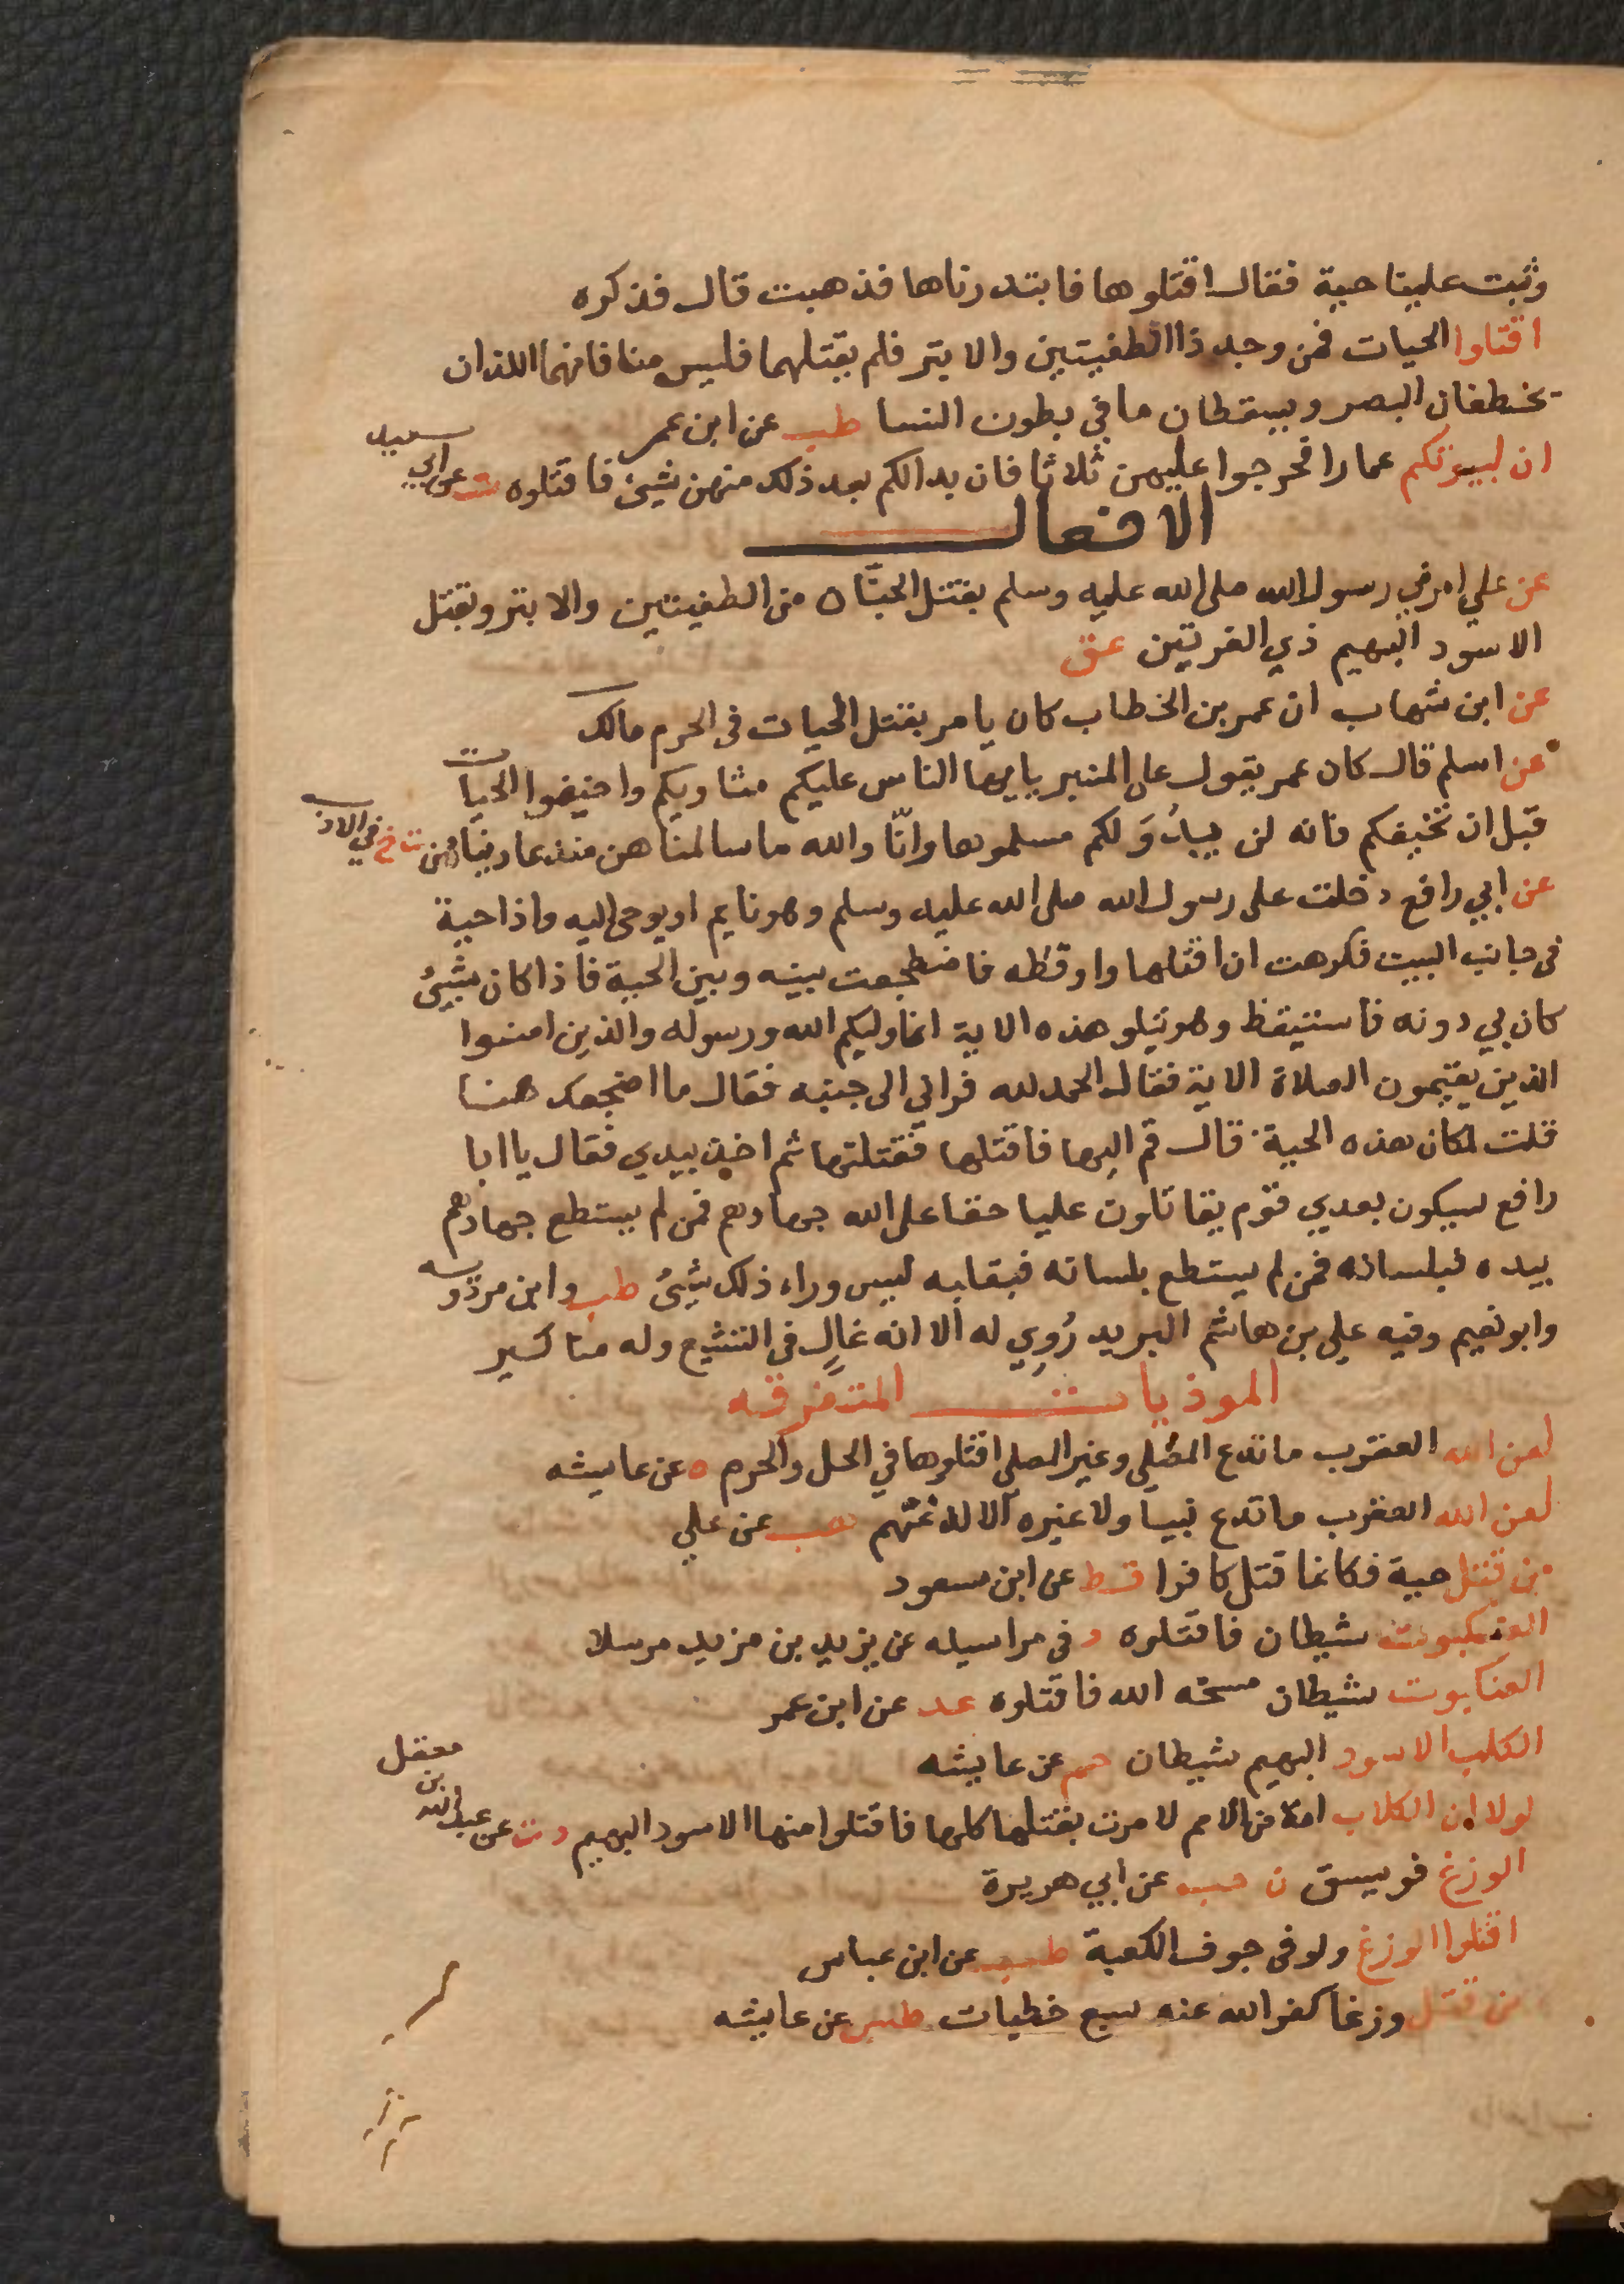 وثبت علينا حية فقال اقتلوها فابتدرناها فذهبت قال فذكره
اقتلوا الحيات فمن وجد ذا الطفيتين والابتر فلم يقتلهما فليس منا فانهما اللذان
يخطفان البصر ويسقطان ما في بطون النسا طب عن ابن عمر
ان لبيوتكم عمارا فحرجوا عليهن ثلاثا فان بدا لكم بعد ذلك منهن شيئ فاقتلوه ت عن ابي سعيد
الافعال
عن علي امرني رسول الله صلى الله عليه وسلم بقتل الحيات من الطفيتين والابتر وبقتل
الاسود البهيم ذي الغرتين عق
عن ابن شهاب ان عمر بن الخطاب كان يامر بقتل الحيات في الحرم مالك
عن اسلم قال كان عمر يقول على المنبر يا ايها الناس عليكم مثاويكم واخيفوا الحيات
قبل ان تخيفكم فانه لن يبدو لكم مسلموها وانّا والله ما سالمناهن منذ عاديناهن خ في الادب
عن ابي رافع دخلت على رسول الله صلى الله عليه وسلم وهو نايم او يوحى اليه واذا حية
في جانب البيت فكرهت ان اقتلها واوقظه فاضطجعت بينه وبين الحية فاذا كان شيئ
كان بي دونه فاستيقظ وهو يتلو هذه الاية انما وليكم الله ورسوله والذين امنوا
الذين يقيمون الصلاة الاية فقال الحمد لله فراني الى جنبه فقال ما اضجعك هنا
قلت لمكان هذه الحية قال قم اليها فاقتلها فقتلتها ثم اخذ بيدي فقال يا ابا
رافع سيكون بعدي قوم يقاتلون عليا حقا على الله جهادهم فمن لم يستطع جهادهم
بيده فبلسانه فمن لم يستطع بلسانه فبقلبه ليس وراء ذلك شيئ طب وابن مردويه
وابو نعيم وفيه علي بن هاشم البريد رُوِي له الا انه غالٍ في التشيع وله مناكير
الموذيات المتفرقه
لعن الله العقرب ما تدع المصلي وغير المصلي اقتلوها في الحل والحرم ه عن عايشه
لعن الله العقرب ما تدع نبيا ولا غيره الا لدغتهم هب عن علي
من قتل حية فكانما قتل كافرا قط عن ابن مسعود
العنكبوت شيطان فاقتلوه د في مراسيله عن يزيد بن مزيد مرسلا
العنكبوت شيطان مسخه الله فاقتلوه عد عن ابن عمر
الكلب الاسود البهيم شيطان حم عن عايشه
لولا ان الكلاب امة من الامم لامرت بقتلها كلها فاقتلوا منها الاسود البهيم د ت عن عبد الله بن معقل
الوزغ فويسق ن حب عن ابي هريرة
اقتلوا الوزغ ولو في جوف الكعبة طب عن ابن عباس
من قتل وزغا كفر الله عنه سبع خطيات طس عن عايشه